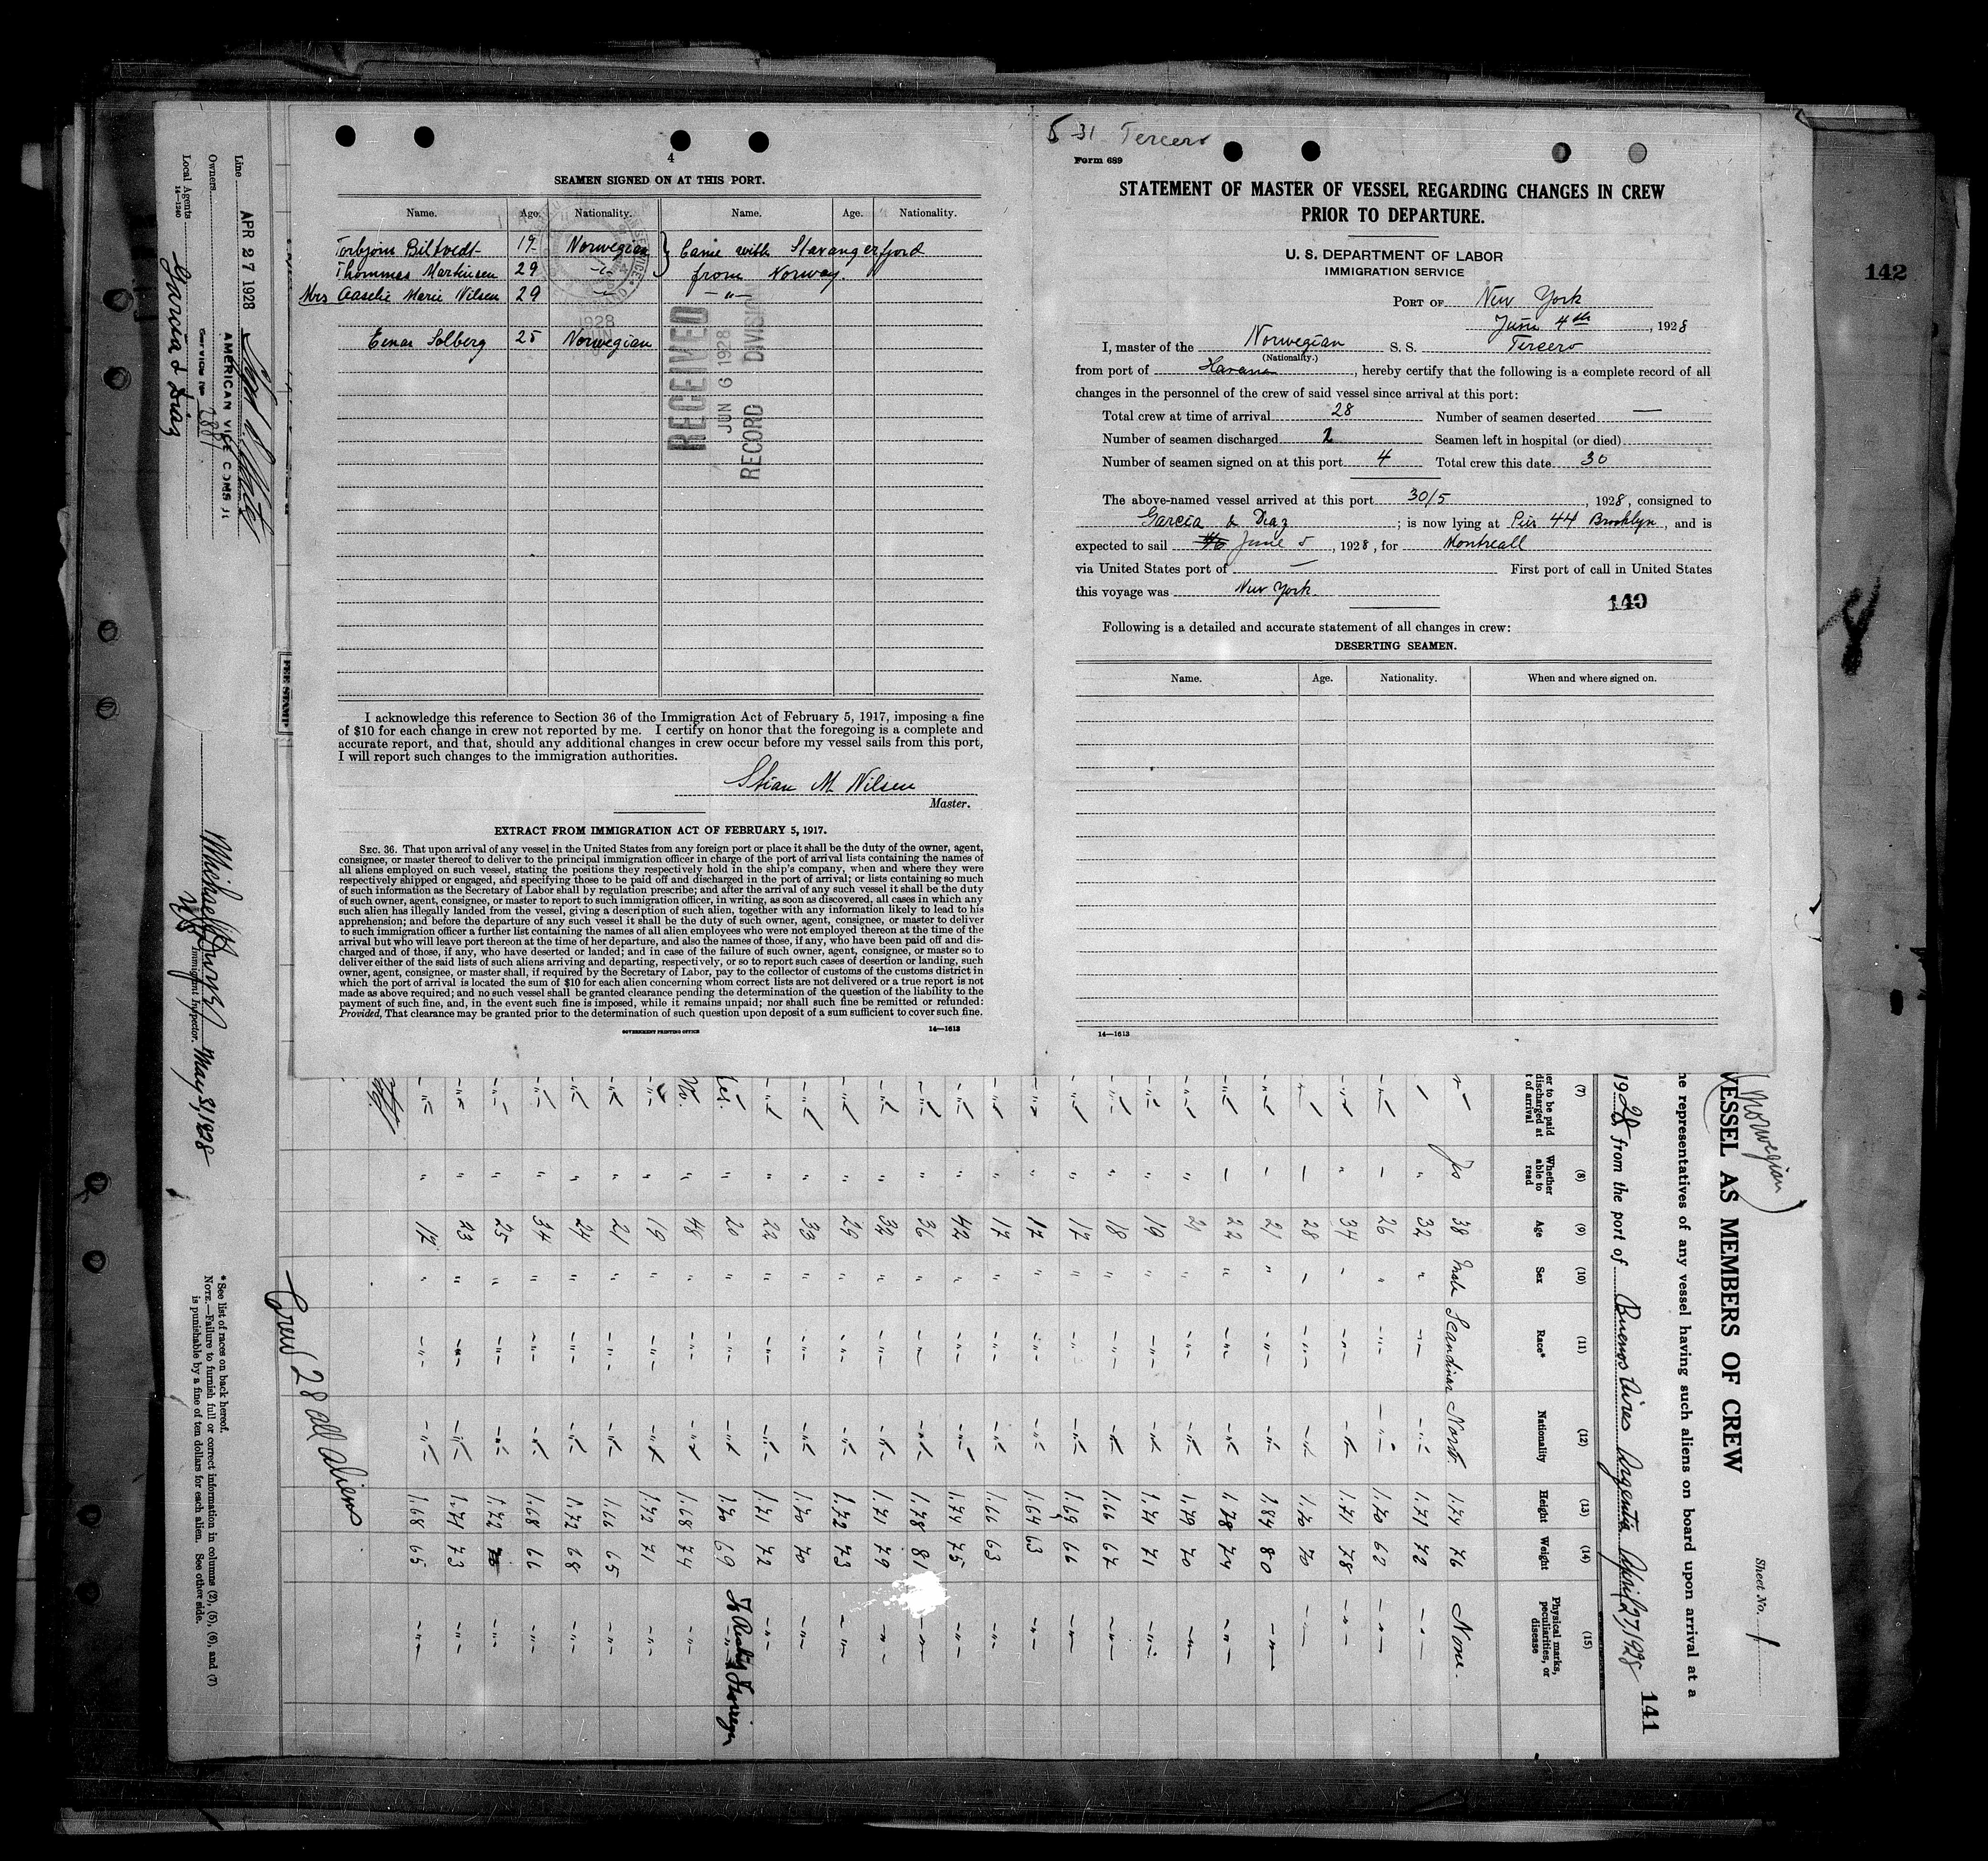 4
SEAMEN SIGNED ON AT THIS PORT.
Name. Age. Nationality. Name. Age. Nationality.
Torbjorn Biltvedt 19 Norwegian } Came with Stavangerfjord
Thommas Martinsen 29 -"- } from Norway.
Mrs Aaselie Marie Nilsen 29 -"- -"-
Einar Solberg 25 Norwegian
RECEIVED
JUN 6 1928
RECORD DIVISION
I acknowledge this reference to Section 36 of the Immigration Act of February 5, 1917, imposing a fine
of $10 for each change in crew not reported by me. I certify on honor that the foregoing is a complete and
accurate report, and that, should any additional changes in crew occur before my vessel sails from this port,
I will report such changes to the immigration authorities.
Stian M Nilsen
Master.
EXTRACT FROM IMMIGRATION ACT OF FEBRUARY 5, 1917.
SEC. 36. That upon arrival of any vessel in the United States from any foreign port or place it shall be the duty of the owner, agent,
consignee, or master thereof to deliver to the principal immigration officer in charge of the port of arrival lists containing the names of
all aliens employed on such vessel, stating the positions they respectively hold in the ship's company, when and where they were
respectively shipped or engaged, and specifying those to be paid off and discharged in the port of arrival; or lists containing so much
of such information as the Secretary of Labor shall by regulation prescribe; and after the arrival of any such vessel it shall be the duty
of such owner, agent, consignee, or master to report to such immigration officer, in writing, as soon as discovered, all cases in which any
such alien has illegally landed from the vessel, giving a description of such alien, together with any information likely to lead to his
apprehension; and before the departure of any such vessel it shall be the duty of such owner, agent, consignee, or master to deliver
to such immigration officer a further list containing the names of all alien employees who were not employed thereon at the time of the
arrival but who will leave port thereon at the time of her departure, and also the names of those, if any, who have been paid off and dis-
charged and of those, if any, who have deserted or landed; and in case of the failure of such owner, agent, consignee, or master so to
deliver either of the said lists of such aliens arriving and departing, respectively, or so to report such cases of desertion or landing, such
owner, agent, consignee, or master shall, if required by the Secretary of Labor, pay to the collector of customs of the customs district in
which the port of arrival is located the sum of $10 for each alien concerning whom correct lists are not delivered or a true report is not
made as above required; and no such vessel shall be granted clearance pending the determination of the question of the liability to the
payment of such fine, and, in the event such fine is imposed, while it remains unpaid; nor shall such fine be remitted or refunded:
Provided, That clearance may be granted prior to the determination of such question upon deposit of a sum sufficient to cover such fine.
GOVERNMENT PRINTING OFFICE 14—1613
5-31 Tercero
Form 689
STATEMENT OF MASTER OF VESSEL REGARDING CHANGES IN CREW
PRIOR TO DEPARTURE.
U. S. DEPARTMENT OF LABOR
IMMIGRATION SERVICE
PORT OF New York
June 4th, 1928
I, master of the Norwegian S. S. Tercero
(Nationality.)
from port of Havana, hereby certify that the following is a complete record of all
changes in the personnel of the crew of said vessel since arrival at this port:
Total crew at time of arrival 28 Number of seamen deserted —
Number of seamen discharged 2 Seamen left in hospital (or died)
Number of seamen signed on at this port 4 Total crew this date 30
The above-named vessel arrived at this port 30/5, 1928, consigned to
Garcia & Diaz; is now lying at Pier 44 Brooklyn, and is
expected to sail June 5, 1928, for Montreall
via United States port of — First port of call in United States
this voyage was New York.
140
Following is a detailed and accurate statement of all changes in crew:
DESERTING SEAMEN.
Name. Age. Nationality. When and where signed on.
14—1613
142
8
Line
APR 27 1928
Owners
AMERICAN VICE CONSUL
Service No. 1881
Local Agents Garcia & Diaz
14—1240
FEE STAMP
Immigrant Inspector.
May 31/1928
* See list of races on back hereof.
NOTE.—Failure to furnish full or correct information in columns (2), (5), (6), and (7)
is punishable by a fine of ten dollars for each alien. See other side.
Crew 28 all aliens
Sheet No. 1
(Norwegian)
VESSEL AS MEMBERS OF CREW
he representatives of any vessel having such aliens on board upon arrival at a
1928 from the port of Buenos Aires Argentia April 27, 1928
141
(7) (8) (9) (10) (11) (12) (13) (14) (15)
er to be paid discharged at t of arrival
Whether able to read
Age
Sex
Race*
Nationality
Height
Weight
Physical marks, peculiarities, or disease
Yes 38 Male Scandinav Norw. 1.74 76 None.
32 1.71 72
26 1.70 62
34 1.71 78
28 1.70 70
21 1.84 80
22 1.78 74
21 1.79 70
19 1.71 71
18 1.66 67
17 1.69 66
17 1.64 63
17 1.66 63
42 1.74 75
36 1.78 81
39 1.71 79
29 1.72 73
33 1.70 70
22 1.71 72
Yes. 20 1.70 69
No. 48 1.68 74
19 1.72 71
21 1.66 65
24 1.72 68
34 1.68 66
25 1.72
23 1.71 73
17 1.68 65